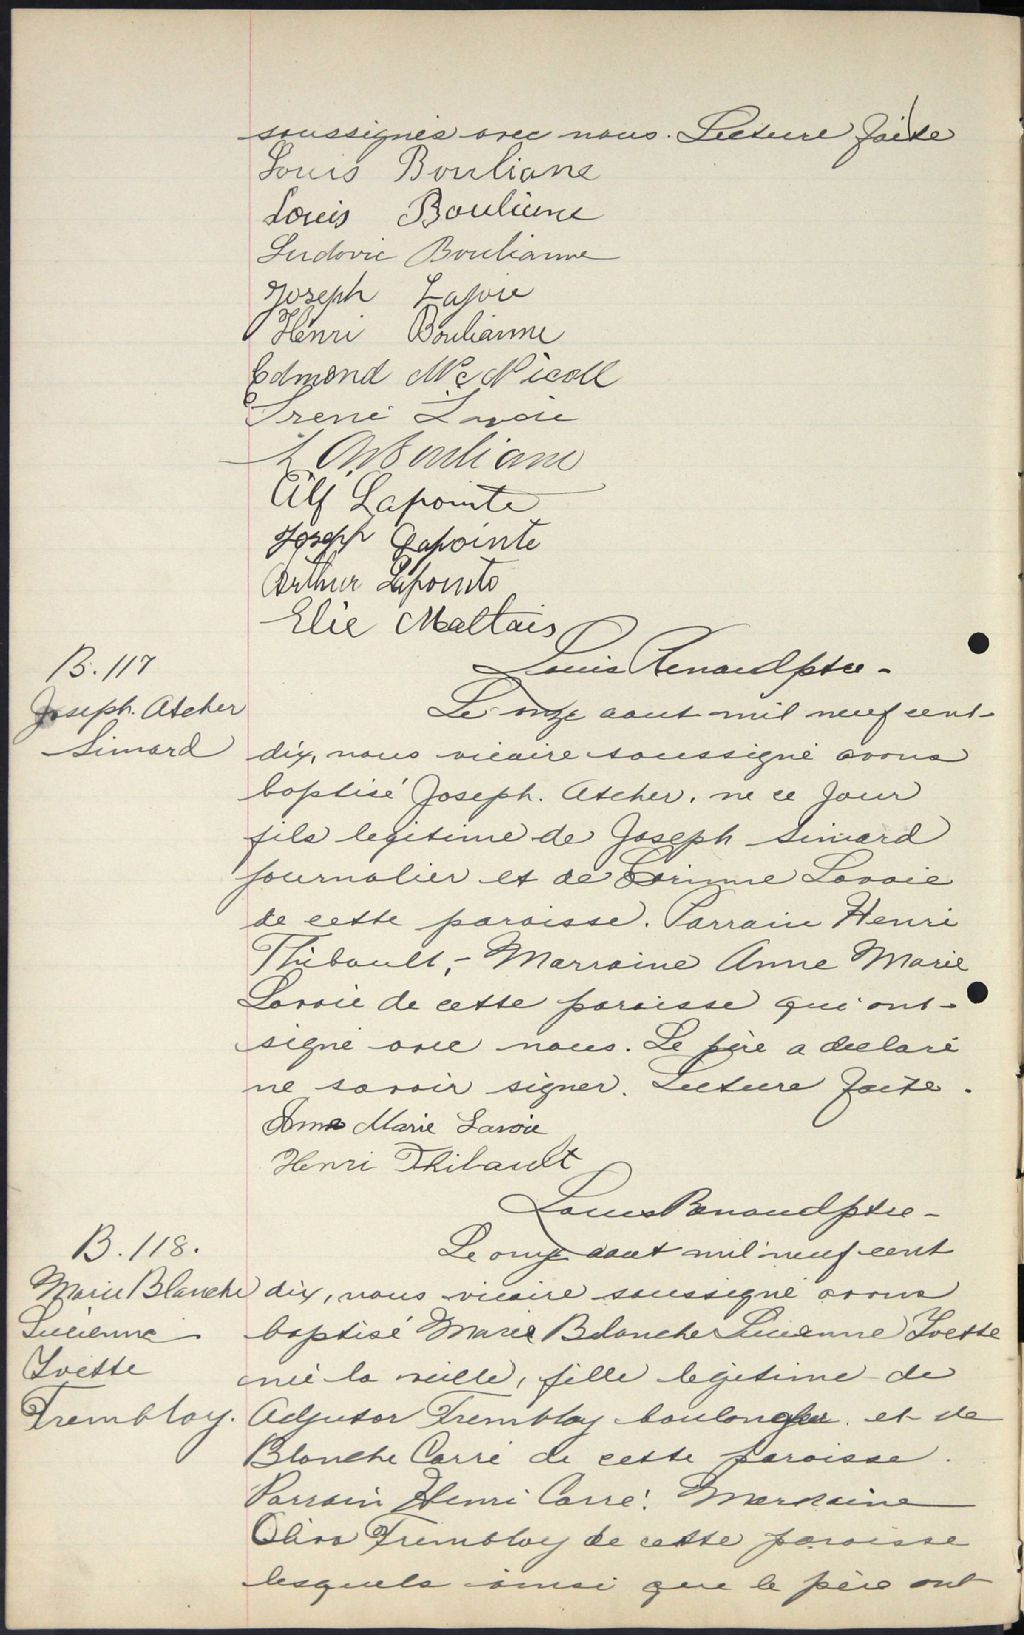 soussignés avec nous. Lecture faite
Louis Bouliane
Louis Boulianne
Ludovic Boulianne
Joseph Lajoie
Henri Boulianne
Edmond McNicoll
Irené Lavoie
Bouliane
Alf Lapointe
Joseph Lapointe
Arthur Lapointe
Elie Maltais
Louis Renaud ptre-
B. 117
Joseph. Atcher
Simard
Le onze aout mil neuf cent-
dix, nous vicaire soussigné avons
baptisé Joseph. Atcher, ne ce jour
fils legitime de Joseph Simard
journalier et de Corinne Lavoie
de cette paroisse. Parrain Henri
Thibault,- Marraine Anne Marie
Lavoie de cette paroisse qui ont-
signé avec nous. Le père a declaré
ne savoir signer. Lecture faite.
Anna Marie Lavoie
Henri Thibault
Louis Renaud ptre-
B. 118.
Marie Blanche
Lucienne
Yvette
Tremblay.
Le onze aout mil neuf cent
dix, nous vicaire soussigné avons
baptisé Marie Blanche Lucienne Yvette
née la veille, fille legitime de
Adjutor Tremblay boulanger et de
Blanche Carré de cette paroisse.
Parrain Henri Carré. Marraine
Oliva Tremblay de cette paroisse
lesquels ainsi que le père ont